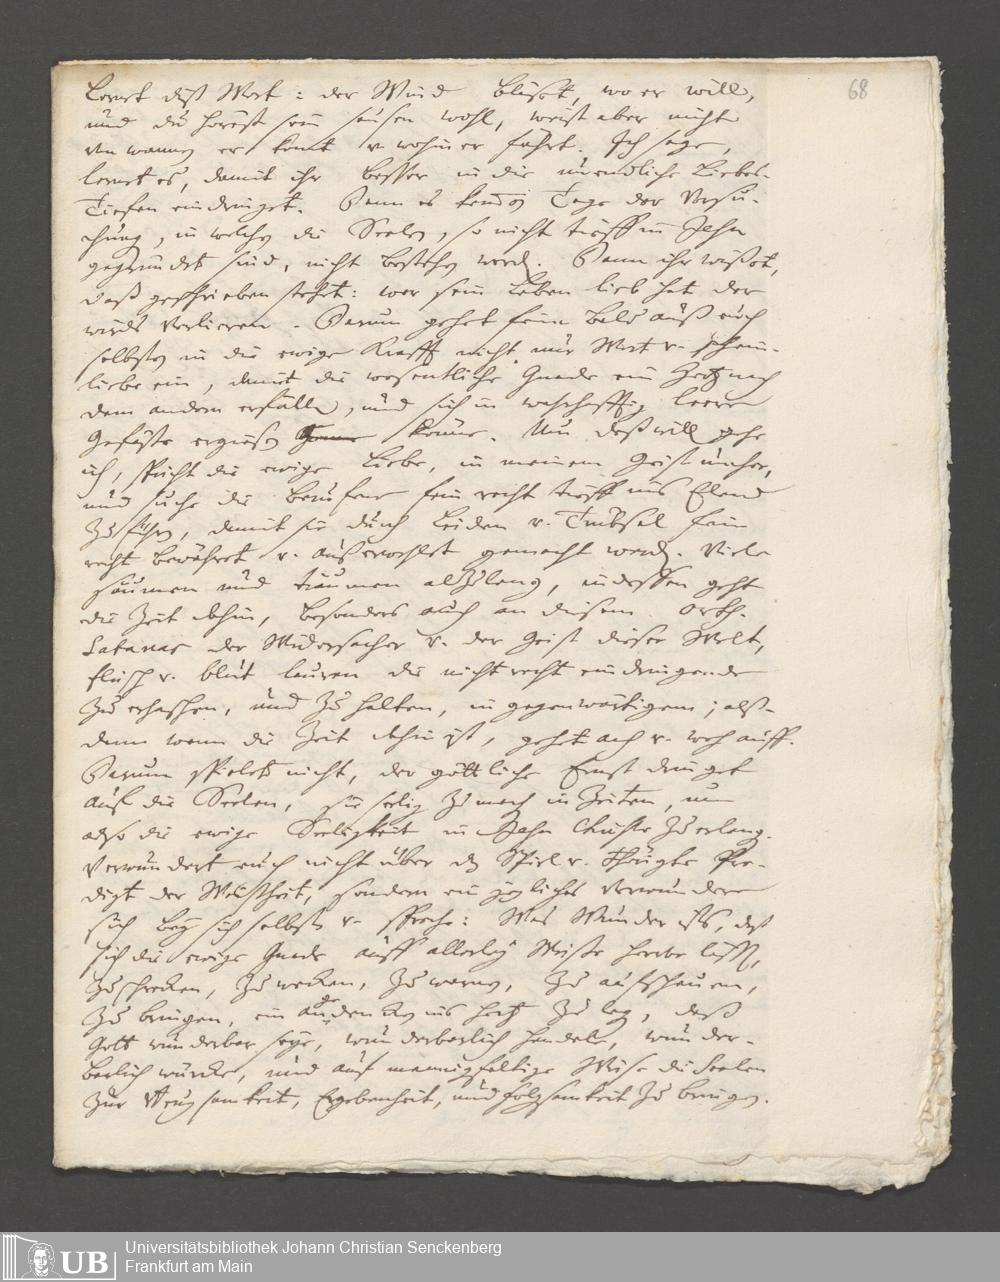 68
Lernet diß Wort: der Wind bläset, wo er will,
und du hörest sein sausen wohl, weist aber nicht
von wannen er komt u. wohin er fährt. Ich sage,
lernet es, damit ihr besser in die unendliche Liebes-
Tiefen eindringet. Dann es kommen Tage der Versu-
chung, in welchen die Seelen, so nicht tieff in Jesu
gegründet sind, nicht bestehen werden. Dann ihr wisset,
daß geschrieben stehet: wer sein Leben lieb hat der
wirds verlieren. Darum gehet fein bald auß euch
selbsten in die ewige Krafft nicht nur Wort u. schein-
liebe ein, damit die wesentliche Gnade ein Hertz nach
dem andern erfülle, und sich in leere
Gefässe ergiessen könne. Um deßwillen gehe
ich, spricht die ewige Liebe, in meinem Geist umher,
und suche die berufene fein recht tieff ins Elend
zu führen, damit sie durch Leiden u. Trübsal fein
recht bewährt u. auserwehlet gemacht werden. Viele
säumen und träumen allzulang, indessen geht
die Zeit dahin, besonders auch an diesem Orth.
Satanas der Widersacher u. der Geist dieser Welt,
fleisch u. blut lauren die nicht recht eindringende
zu erhaschen, und zu halten, in gegenwärtigem; alß-
dann wann die Zeit dahin ist, gehet ach u. weh auff.
Darum spielet nicht, der göttliche Ernst dringet
auf die Seelen, sie selig zu machen in Zeiten, um
also die ewige Seeligkeit in Jesu Christo zu erlangen.
Verwundert euch nicht über das Spiel u. Pre-
digt der Weißheit, sondern ein jeglicher verwundere
sich bey sich selbsten u. spreche: Was Wunder ists, daß
sich die ewige Gnade auff allerley Weise herbe läßt,
zu schrecken, zu wecken, zu warnen, zu aufschauern,
zu bringen, ein andencken ins hertz zu legen, daß
Gott wunderbar seye, wunderbarlich handele, wunder-
barlich würcke, und auf mannigfaltige Weise die Seelen
zur Beugsamkeit, Ergebenheit, und folgsamkeit zu bringen.
UB
Universitätsbibliothek Johann Christian Senckenberg
Frankfurt am Main